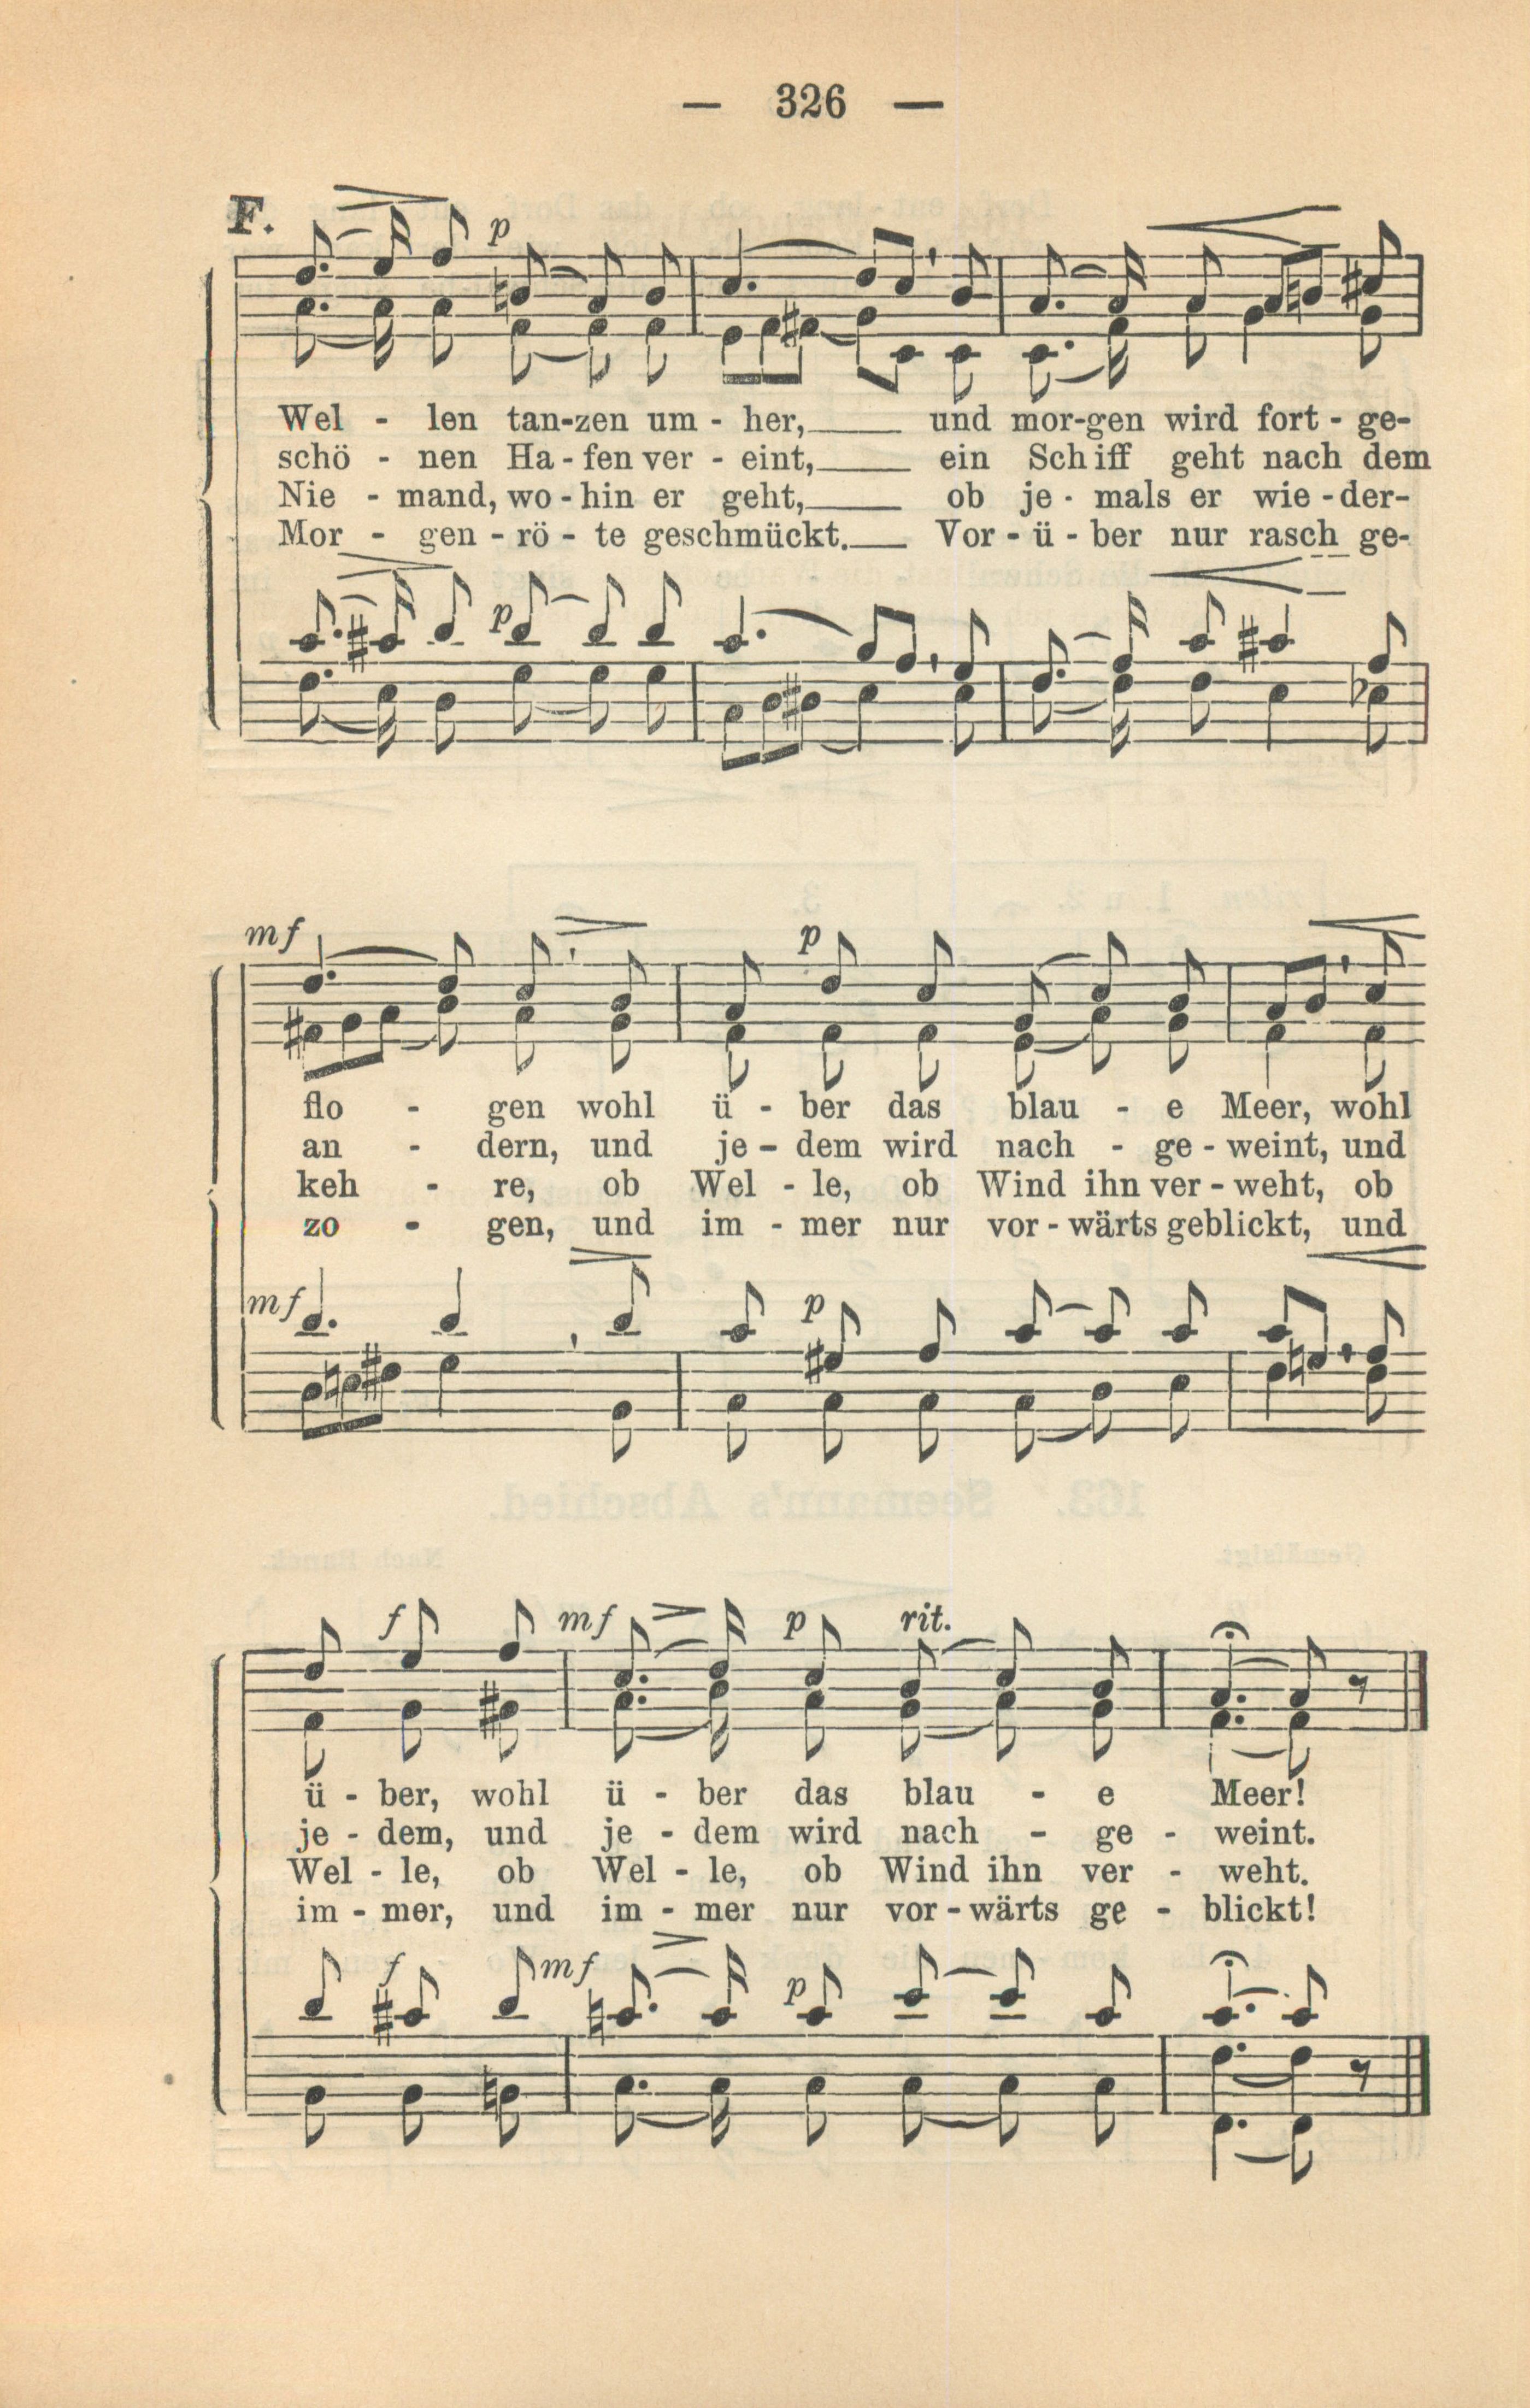 — 326 —
F.
p
Wel - len tan-zen um - her, und mor-gen wird fort - ge-
schö - nen Ha - fen ver - eint, ein Schiff geht nach dem
Nie - mand, wo - hin er geht, ob je - mals er wie - der-
Mor - gen - rö - te geschmückt. Vor - ü - ber nur rasch ge-
p
mf p
flo - gen wohl ü - ber das blau - e Meer, wohl
an - dern, und je - dem wird nach - ge - weint, und
keh - re, ob Wel - le, ob Wind ihn ver - weht, ob
zo - gen, und im - mer nur vor - wärts geblickt, und
mf p
f mf p rit.
ü - ber, wohl ü - ber das blau - e Meer!
je - dem, und je - dem wird nach - ge - weint.
Wel - le, ob Wel - le, ob Wind ihn ver - weht.
im - mer, und im - mer nur vor - wärts ge - blickt!
f mf p